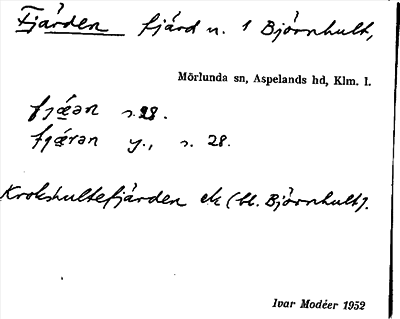 Fjärden fjärd n. 1 Björnhult,
Mörlunda sn, Aspelands hd, Klm. l.
fjǽən s. 28.
fjǽrən y., s. 28.
Krokshultefjärden ek (bl. Björnhult).
Ivar Modéer 1952